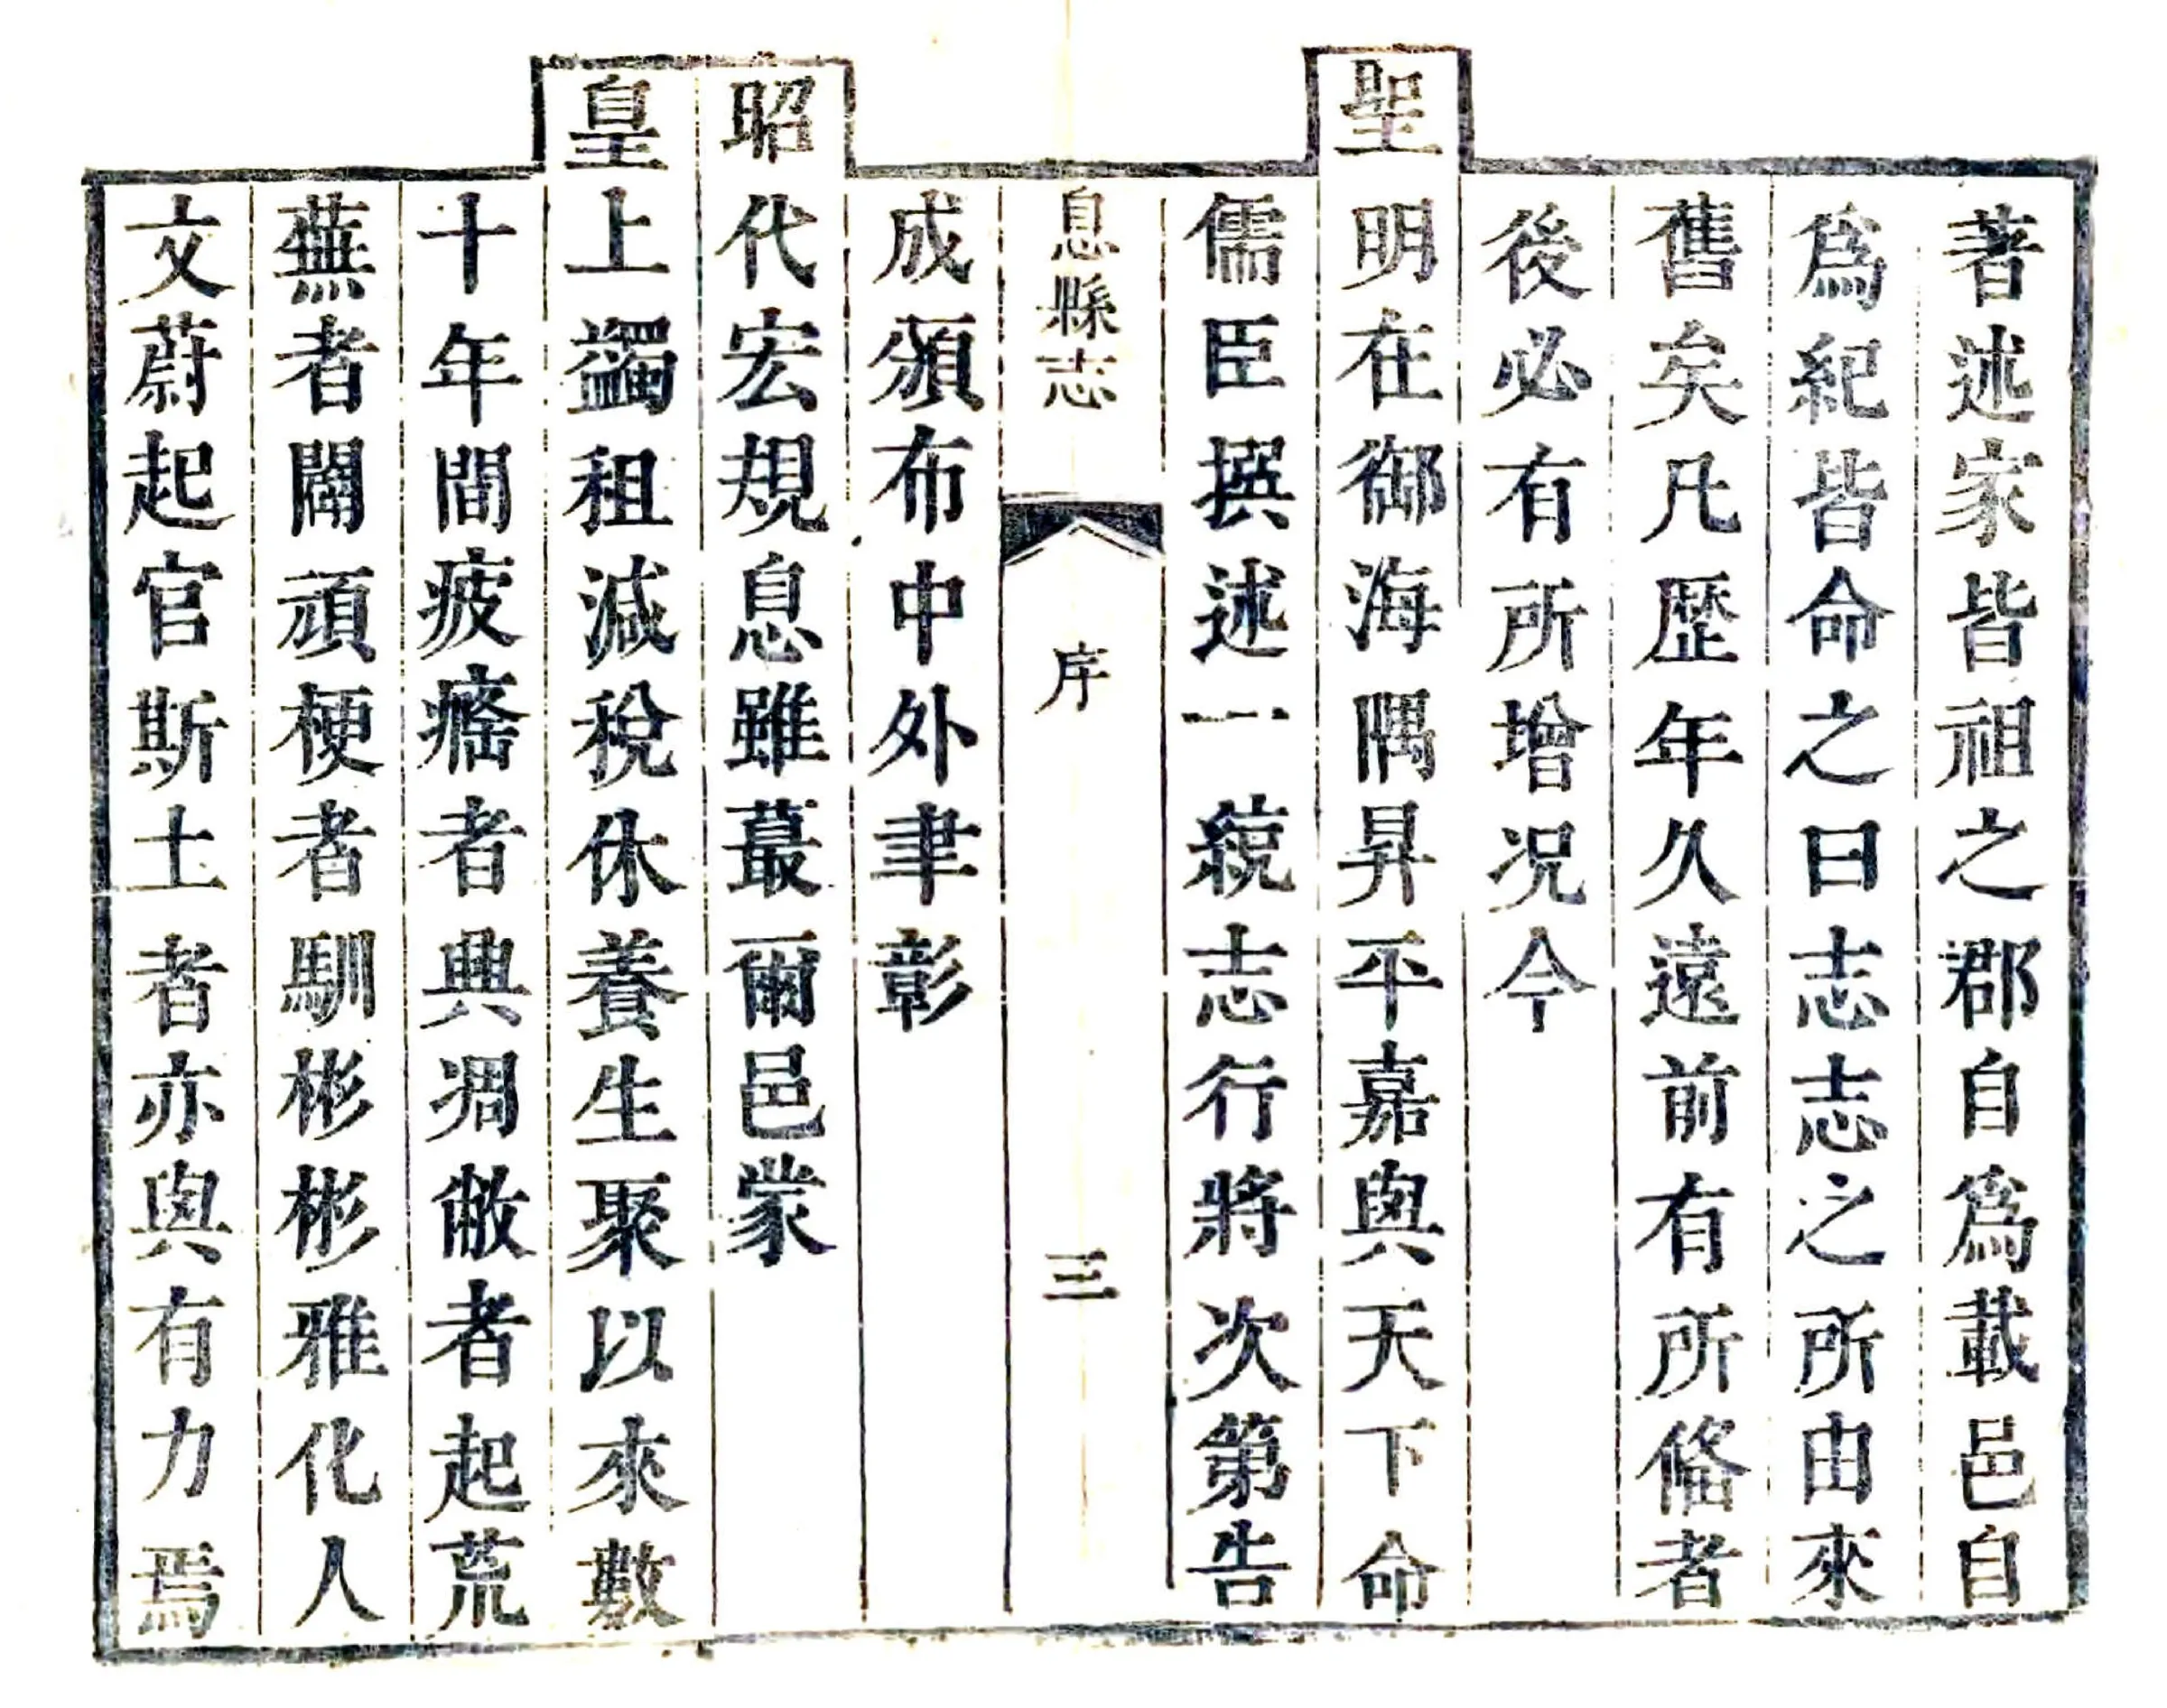 著述家皆祖之郡自爲載邑自
爲紀皆命之曰志志之所由來
舊矣凡歷年久遠前有所脩者
後必有所增况今
聖明在御海隅昇平嘉與天下命
儒臣撰述一綂志行將次第告
息縣志
序
三
成頒布中外聿彰
昭代宏規息雖蕞爾邑蒙
皇上蠲租減稅休養生聚以來數
十年間疲癃者興凋敝者起荒
蕪者闢頑梗者馴彬彬雅化人
文蔚起官斯土者亦與有力焉